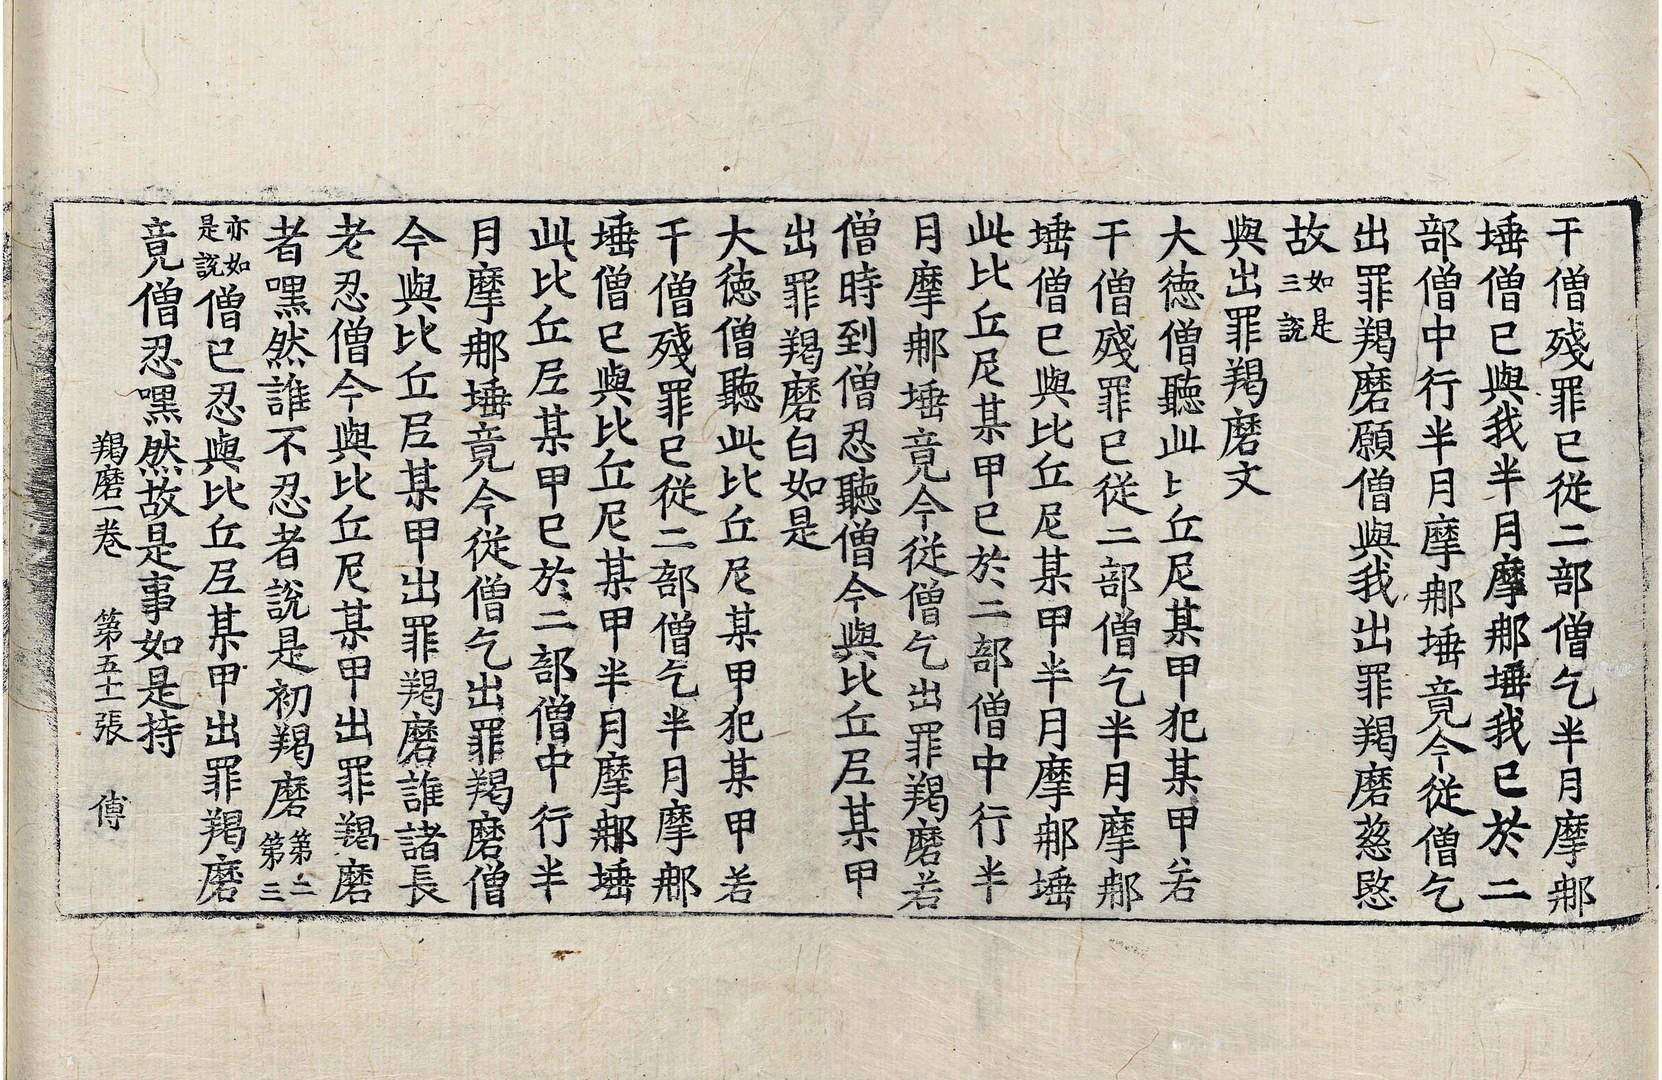 干僧殘罪已從二部僧乞半月摩那
埵僧已與我半月摩那埵我已於二
部僧中行半月摩那埵竟今從僧乞
出罪羯磨願僧與我出罪羯磨慈愍
故如是三說
與出罪羯磨文
大德僧聽此比丘尼某甲犯某甲若
干僧殘罪已從二部僧乞半月摩那
埵僧已與比丘尼某甲半月摩那埵
此比丘尼某甲已於二部僧中行半
月摩那埵竟今從僧乞出罪羯磨若
僧時到僧忍聽僧今與比丘尼某甲
出罪羯磨白如是
大德僧聽此比丘尼某甲犯某甲若
干僧殘罪已從二部僧乞半月摩那
埵僧已與比丘尼某甲半月摩那埵
此比丘尼某甲已於二部僧中行半
月摩那埵竟今從僧乞出罪羯磨僧
今與比丘尼某甲出罪羯磨誰諸長
老忍僧今與比丘尼某甲出罪羯磨
者嘿然誰不忍者說是初羯磨第二第三
亦如是說僧已忍與比丘尼某甲出罪羯磨
竟僧忍嘿然故是事如是持
羯磨一卷 第五十一張 傅